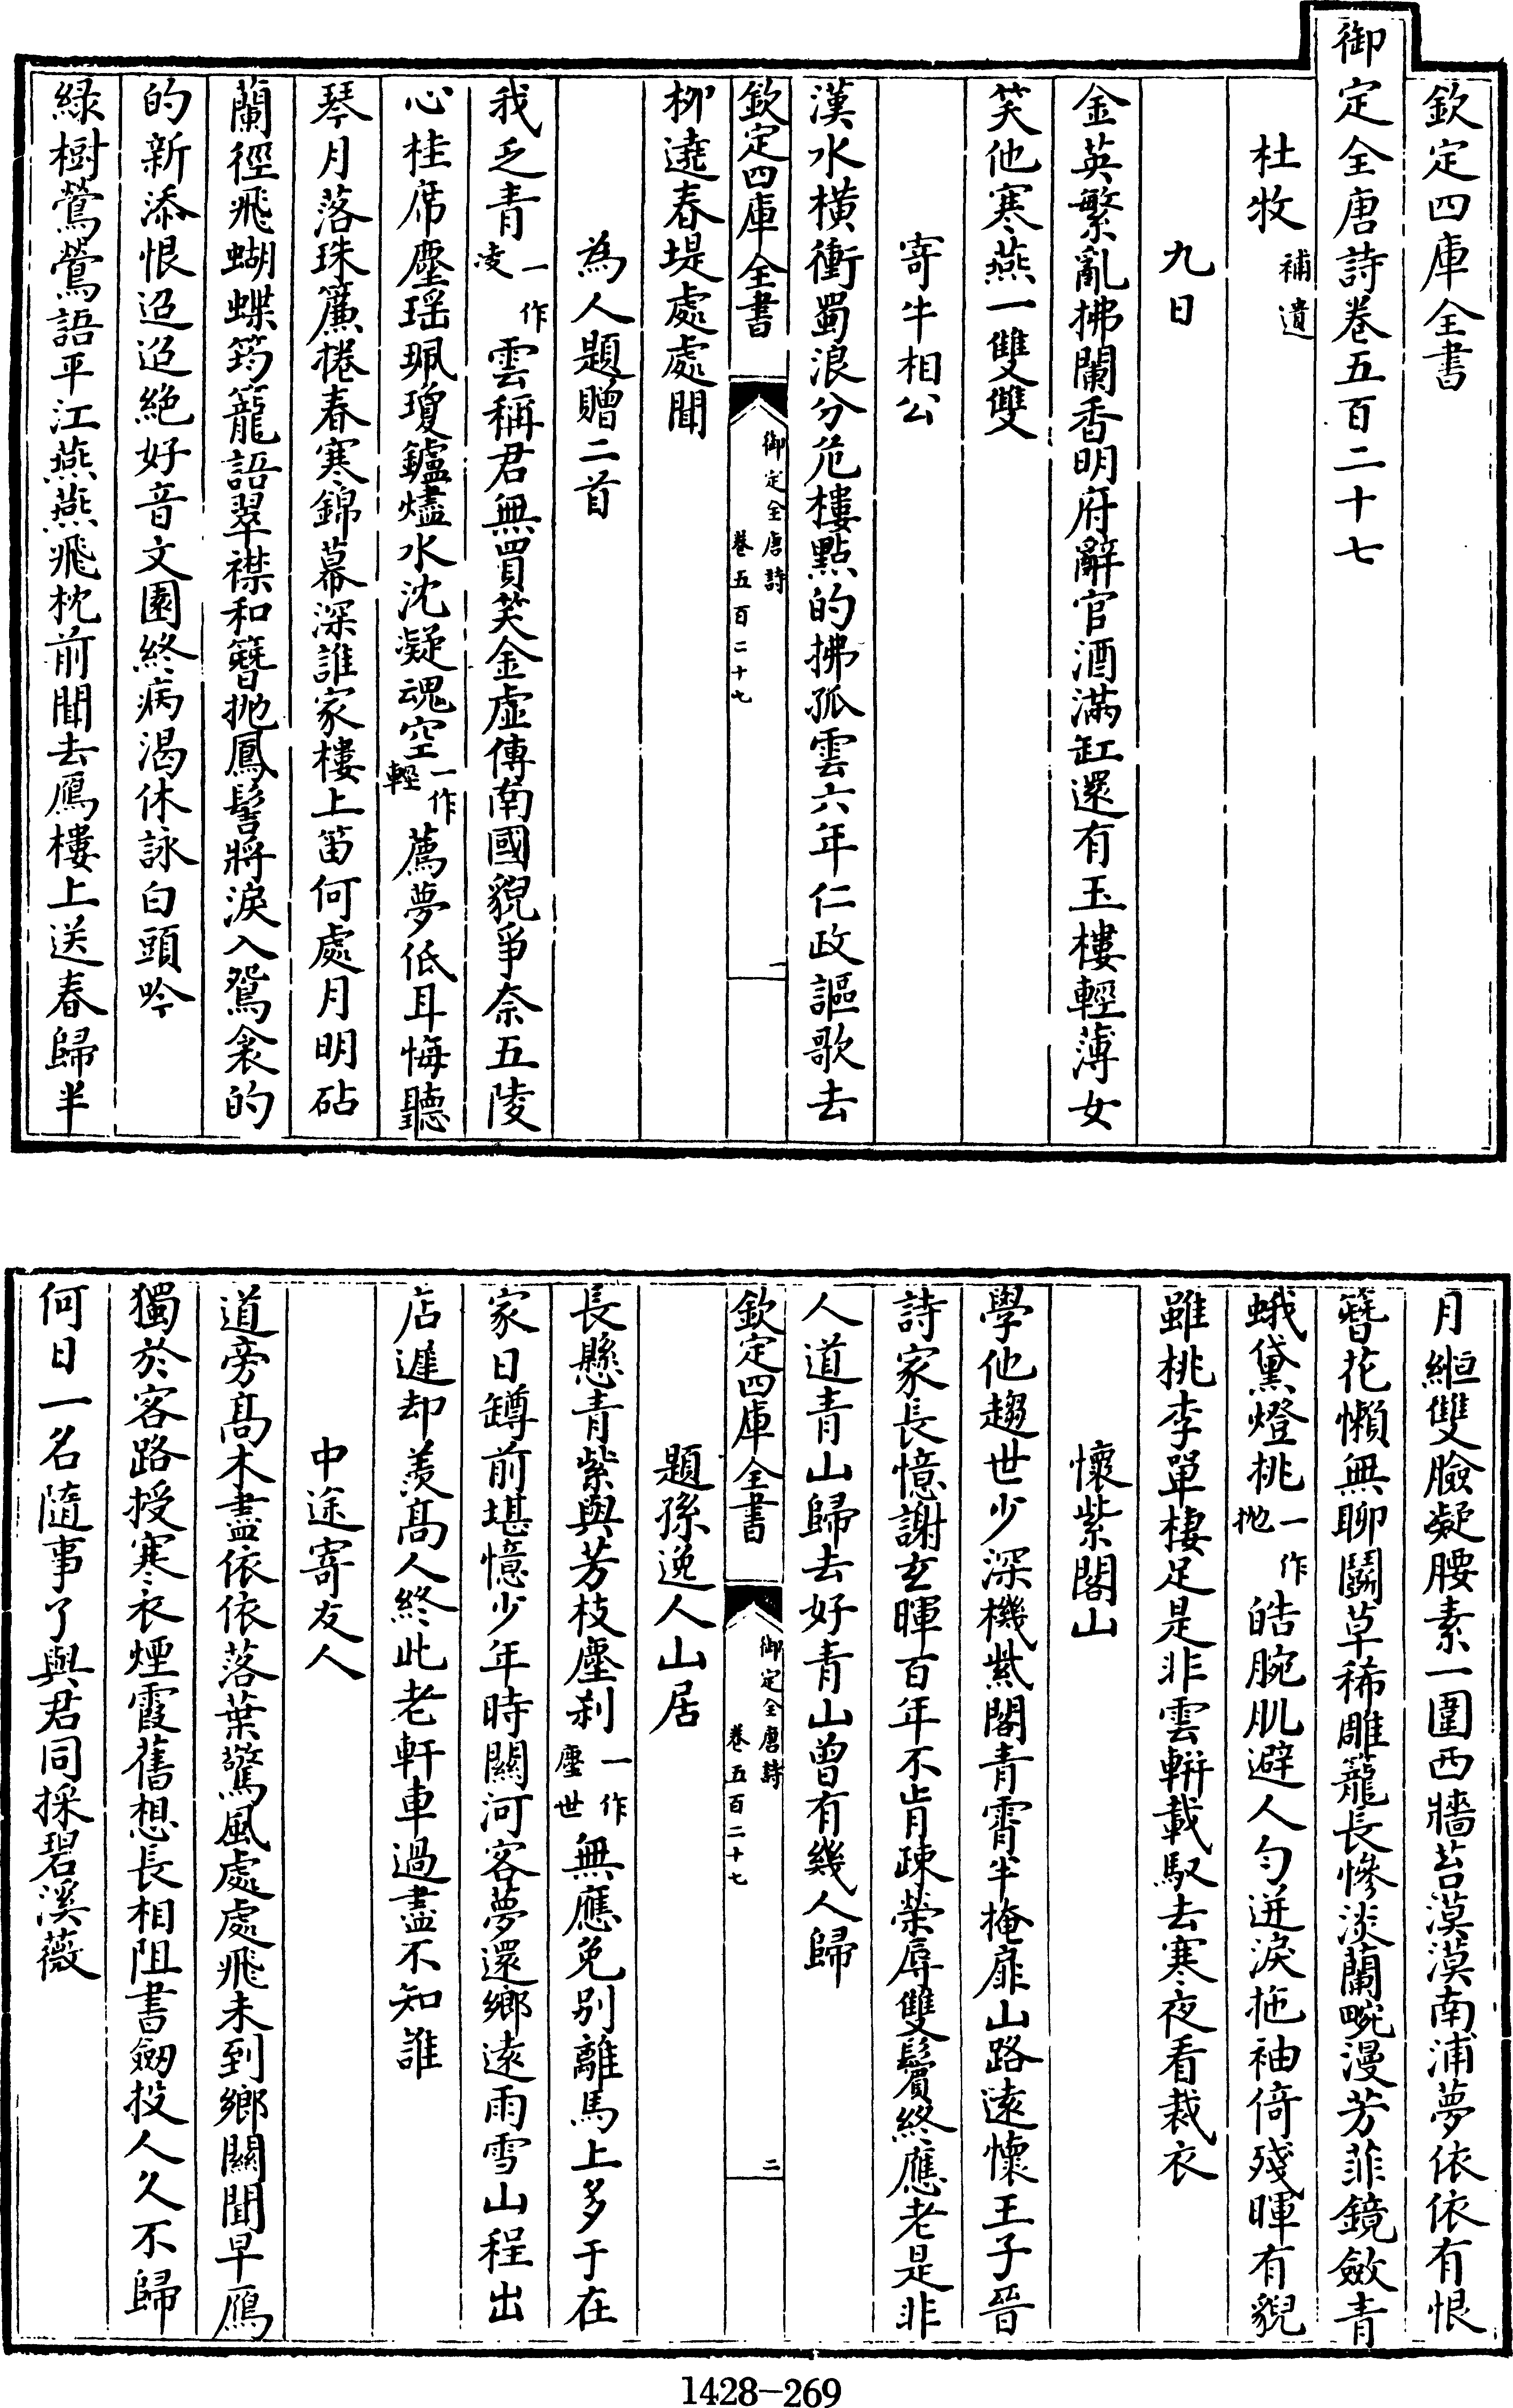 欽定四庫全書
御定全唐詩卷五百二十七
杜牧補遺
九日
金英繁亂拂闌香明府辭官酒滿缸還有玉樓輕薄女
笑他寒燕一雙雙
寄牛相公
漢水橫衝蜀浪分危樓點的拂孤雲六年仁政謳歌去
欽定四庫全書 御定全唐詩卷五百二十七 一
柳遶春堤處處聞
為人題贈二首
我乏青一作凌雲稱君無買笑金虛傳南國貌爭奈五陵
心桂席塵瑶珮瓊鑪燼水沈凝魂空一作輕薦夢低耳悔聽
琴月落珠簾捲春寒錦幕深誰家樓上笛何處月明砧
蘭徑飛蝴蝶筠籠語翠襟和簪抛鳳髻將淚入鴛衾的
的新添恨迢迢絶好音文園終病渴休詠白頭吟
緑樹鶯鶯語平江燕燕飛枕前聞去鴈樓上送春歸半
月緪雙臉凝腰素一圍西牆苔漠漠南浦夢依依有恨
簪花懶無聊鬭草稀雕籠長慘淡蘭畹漫芳菲鏡斂青
蛾黛燈挑一作抛皓腕肌避人勻迸淚拖袖倚殘暉有貌
雖桃李單棲足是非雲軿載馭去寒夜看裁衣
懷紫閣山
學他趨世少深機紫閣青霄半掩扉山路遠懷王子晉
詩家長憶謝玄暉百年不肯疎榮辱雙鬢終應老是非
人道青山歸去好青山曾有幾人歸
欽定四庫全書 御定全唐詩卷五百二十七 二
題孫逸人山居
長懸青紫與芳枝塵刹一作塵世無應免别離馬上多于在
家日罇前堪憶少年時關河客夢還鄉遠雨雪山程出
店遲却羨髙人終此老軒車過盡不知誰
中途寄友人
道旁髙木盡依依落葉驚風處處飛未到鄉關聞早鴈
獨於客路授寒衣煙霞舊想長相阻書劒投人久不歸
何日一名隨事了與君同採碧溪薇
1428-269